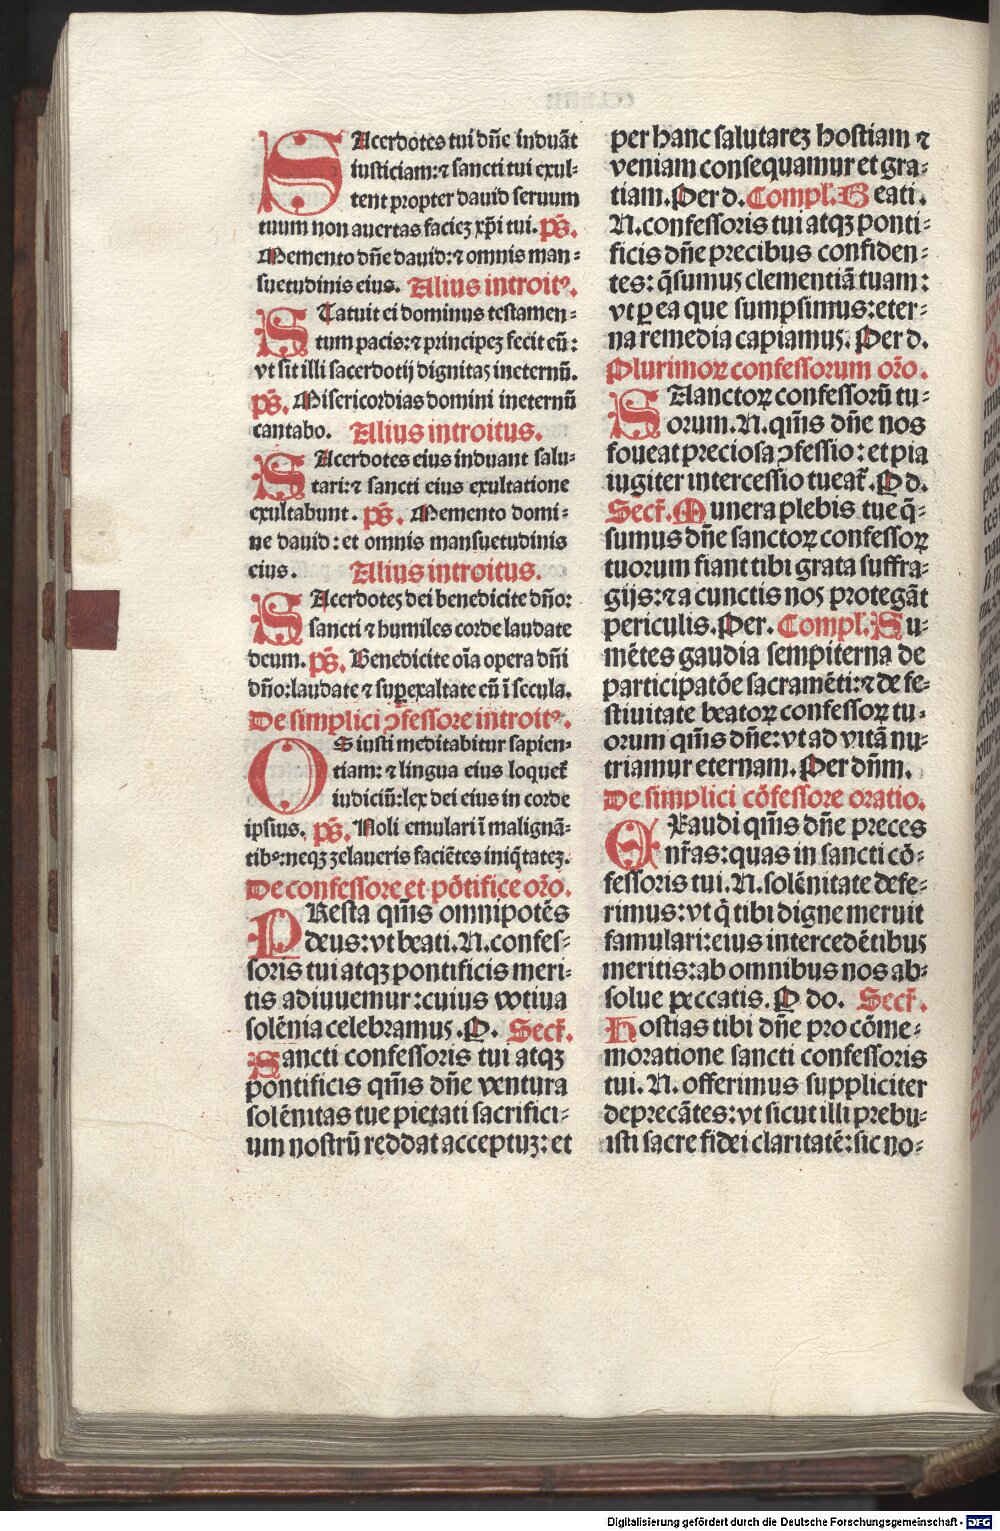 SAcerdotes tui dñe induãt
iusticiam:⁊ sancti tui exul⸗
tent propter dauid seruum
tuum non auertas faciez xp̃i tui. ps̃.
Memento dñe dauid:⁊ omnis man⸗
suetudinis eius. Alius introitꝰ.
STatuit ei dominus testamen⸗
tum pacis:⁊ principez fecit eũ:
vt sit illi sacerdotij dignitas ineternũ.
ps̃. Misericordias domini ineternũ
cantabo. Alius introitus.
SAcerdotes eius induant salu⸗
tari:⁊ sancti eius exultatione
exultabunt. ps̃. Memento domi⸗
ne dauid: et omnis mansuetudinis
eius. Alius introitus.
SAcerdotes dei benedicite dño:
sancti ⁊ humiles corde laudate
deum. ps̃. Benedicite oĩa opera dñi
dño:laudate ⁊ suꝑexaltate eũ ĩ secula.
De simplici ꝯfessore introitꝰ.
OS iusti meditabitur sapien⸗
tiam: ⁊ lingua eius loquet᷑
iudiciũ:lex dei eius in corde
ipsius. ps̃. Noli emulari ĩ malignã⸗
tibꝰ:neqꝫ zelaueris faciẽtes iniq̃tatez.
De confessore et põtifice or̃o.
PResta qm̃s omnipotẽs
deus:vt beati.N.confes⸗
soris tui atqꝫ pontificis meri⸗
tis adiuuemur:cuius votiua
solẽnia celebramus.P. Secr̃.
Sancti confessoris tui atqꝫ
pontificis qm̃s dñe ventura
solẽnitas tue pietati sacrifici⸗
um nostrũ reddat acceptuz: et
per hanc salutarez hostiam ⁊
veniam consequamur et gra⸗
tiam.Per d. Compl̃. Beati.
N.confessoris tui atqꝫ ponti⸗
ficis dñe precibus confiden⸗
tes: q̃sumus clementiã tuam:
vt ꝑ ea que sumpsimus:eter⸗
na remedia capiamus. Per d.
Plurimoꝝ confessorum or̃o.
SAanctoꝝ confessorũ tu⸗
orum.N.qm̃s dñe nos
foueat preciosa ꝯfessio: et pia
iugiter intercessio tueat᷑.P d.
Secr̃. Munera plebis tue q̃⸗
sumus dñe sanctoꝝ confessoꝝ
tuorum fiant tibi grata suffra⸗
gijs:⁊ a cunctis nos protegãt
periculis.Per. Compl̃. Su⸗
mẽtes gaudia sempiterna de
participatõe sacramẽti:⁊ de fe⸗
stiuitate beatoꝝ confessoꝝ tu⸗
orum qm̃s dñe:vt ad vitã nu⸗
triamur eternam. Per dñm.
De simplici cõfessore oratio.
EXaudi qm̃s dñe preces
nr̃as:quas in sancti cõ⸗
fessoris tui.N.solẽnitate defe⸗
rimus:vt q̃ tibi digne meruit
famulari:eius intercedẽtibus
meritis:ab omnibus nos ab⸗
solue peccatis.P do. Secr̃.
Hostias tibi dñe pro cõme⸗
moratione sancti confessoris
tui. N. offerimus suppliciter
deprecãtes:vt sicut illi prebu⸗
isti sacre fidei claritatẽ:sic no⸗
Digitalisierung gefördert durch die Deutsche Forschungsgemeinschaft - DFG